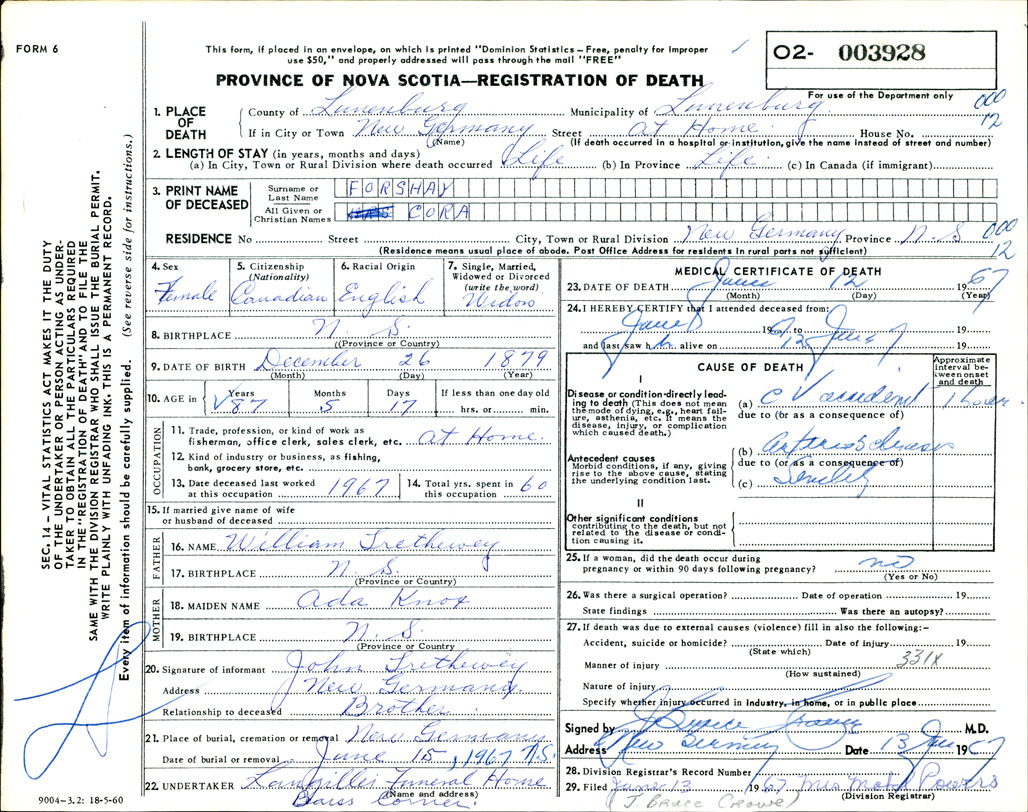 FORM 6
This form, if placed in an envelope, on which is printed "Dominion Statistics – Free, penalty for improper
use $50," and properly addressed will pass through the mail "FREE"
O2- 003928
PROVINCE OF NOVA SCOTIA—REGISTRATION OF DEATH
For use of the Department only
000
12
1. PLACE OF DEATH
County of Lunenburg Municipality of Lunenburg
If in City or Town New Germany Street At Home House No.
(Name) (If death occurred in a hospital or institution, give the name instead of street and number)
2. LENGTH OF STAY (in years, months and days)
(a) In City, Town or Rural Division where death occurred Life (b) In Province Life (c) In Canada (if immigrant)
3. PRINT NAME OF DECEASED
Surname or Last Name FORSHAY
All Given or Christian Names CORA
RESIDENCE No Street City, Town or Rural Division New Germany Province N.S
000
12
(Residence means usual place of abode. Post Office Address for residents in rural parts not sufficient)
4. Sex
Female
5. Citizenship
(Nationality)
Canadian
6. Racial Origin
English
7. Single, Married,
Widowed or Divorced
(write the word)
Widow
8. BIRTHPLACE N. S.
(Province or Country)
9. DATE OF BIRTH December 26 1879
(Month) (Day) (Year)
10. AGE in Years 87 Months 5 Days 17 If less than one day old
hrs. or min.
OCCUPATION
11. Trade, profession, or kind of work as
fisherman, office clerk, sales clerk, etc. At Home.
12. Kind of industry or business, as fishing,
bank, grocery store, etc.
13. Date deceased last worked
at this occupation 1967
14. Total yrs. spent in
this occupation 60
15. If married give name of wife
or husband of deceased
FATHER
16. NAME William Trethewey
17. BIRTHPLACE N. S.
(Province or Country)
MOTHER
18. MAIDEN NAME Ada Knox
19. BIRTHPLACE N. S.
(Province or Country)
20. Signature of informant John Trethewey
Address New Germany.
Relationship to deceased Brother.
21. Place of burial, cremation or removal New Germany
Date of burial or removal June 15, 1967 N.S.
22. UNDERTAKER Funeral Home
(Name and address)
Barss Corner.
MEDICAL CERTIFICATE OF DEATH
23. DATE OF DEATH June 12 1967
(Month) (Day) (Year)
24. I HEREBY CERTIFY that I attended deceased from:
June 19 to 19
and last saw h alive on 12 June 19
CAUSE OF DEATH
Approximate
interval between onset
and death
I
Disease or condition directly leading
to death (This does not mean
the mode of dying, e.g., heart failure,
asthenia, etc. It means the
disease, injury, or complication
which caused death.)
(a) C V accident 1 hour
due to (or as a consequence of)
Antecedent causes
Morbid conditions, if any, giving
rise to the above cause, stating
the underlying condition last.
(b)
due to (or as a consequence of)
(c) Senility
II
Other significant conditions
contributing to the death, but not
related to the disease or condition
causing it.
25. If a woman, did the death occur during
pregnancy or within 90 days following pregnancy? no
(Yes or No)
26. Was there a surgical operation? Date of operation 19
State findings Was there an autopsy?
27. If death was due to external causes (violence) fill in also the following:–
Accident, suicide or homicide? Date of injury 19
(State which)
331X
Manner of injury
(How sustained)
Nature of injury
Specify whether injury occurred in Industry, in home, or in public place
Signed by M.D.
Address New Germany Date 13 June 1967
28. Division Registrar's Record Number
29. Filed June 13 1967 Mrs Powers
(Division Registrar)
(J. Bruce Crowe)
SEC. 14 – VITAL STATISTICS ACT MAKES IT THE DUTY
OF THE UNDERTAKER OR PERSON ACTING AS UNDERTAKER
TO OBTAIN ALL THE PARTICULARS REQUIRED
IN THE "REGISTRATION OF DEATH" AND TO FILE THE
SAME WITH THE DIVISION REGISTRAR WHO SHALL ISSUE THE BURIAL PERMIT.
WRITE PLAINLY WITH UNFADING INK. THIS IS A PERMANENT RECORD.
Every item of information should be carefully supplied. (See reverse side for instructions.)
9004–3.2: 18-5-60